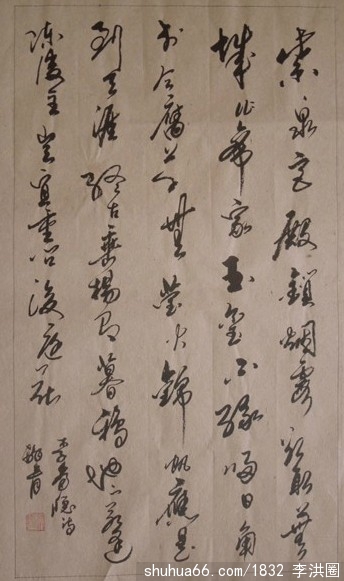 紫泉宮殿鎖烟霞欲取蕪
城作帝家玉璽不緣歸日角
於今腐草無螢火錦帆應是
到天涯終古垂楊有暮鴉地下若逢
陳後主豈宜重問後庭花
李商隱詩
shuhua66.com/1832 李洪圈